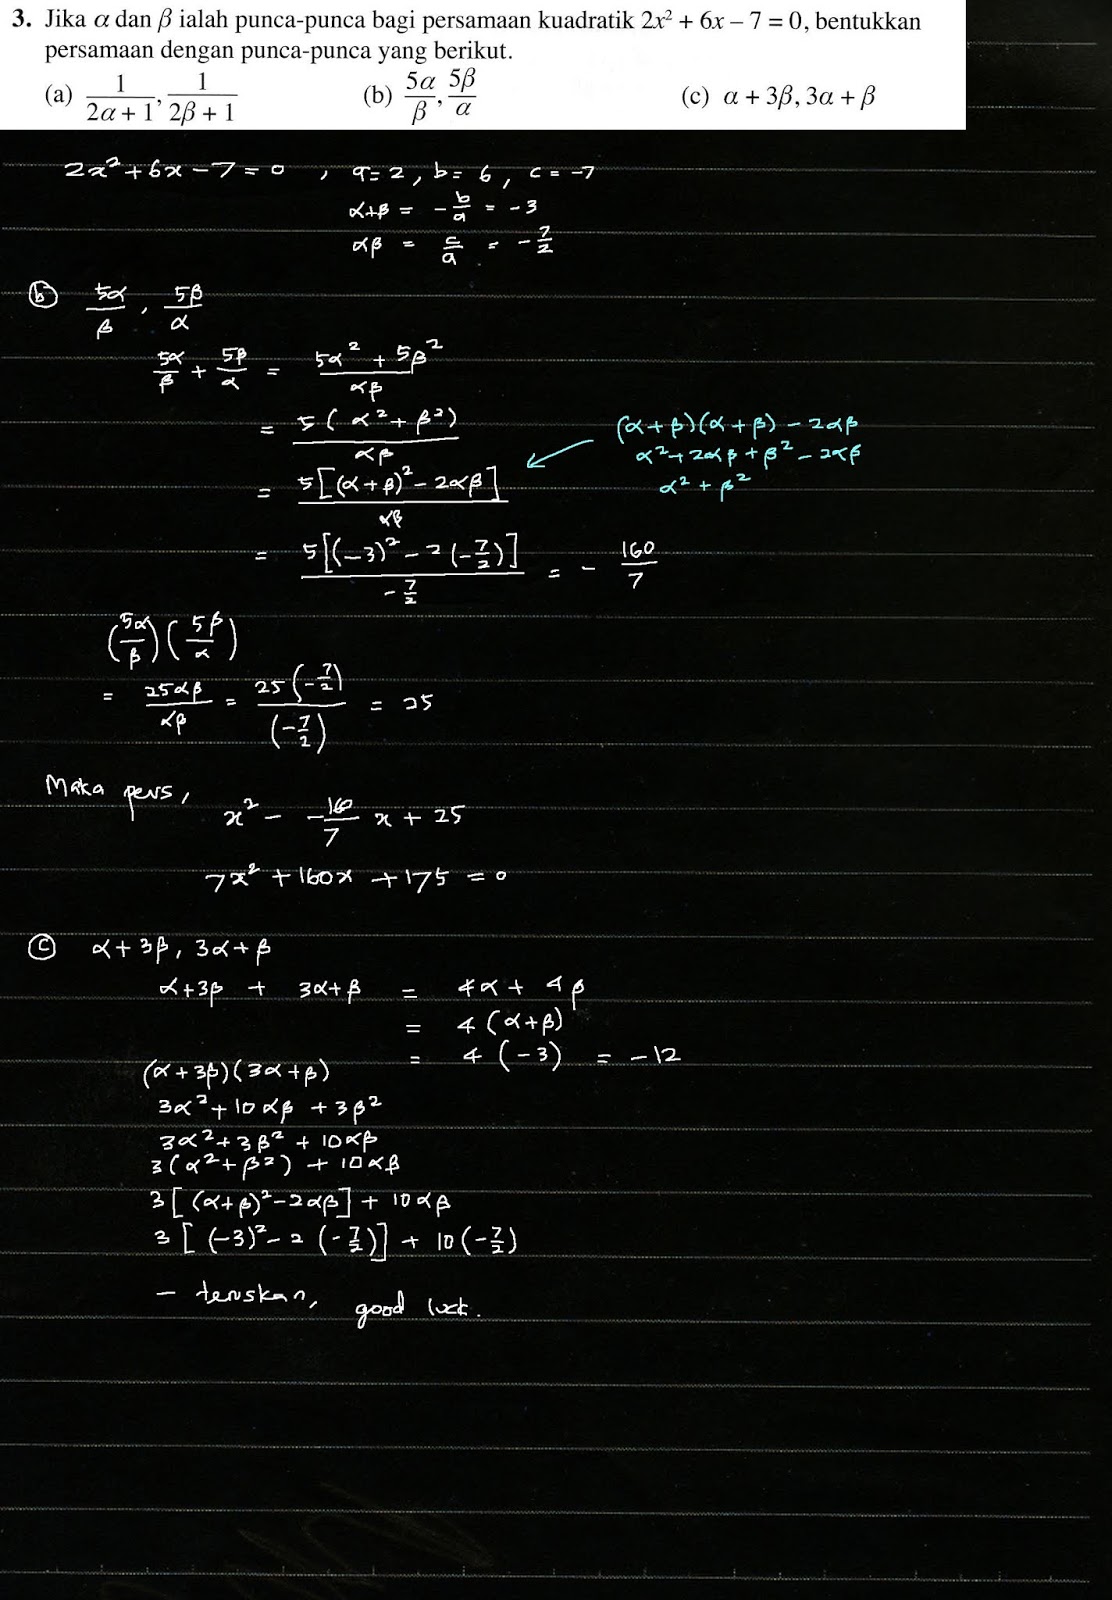 3. Jika α dan β ialah punca-punca bagi persamaan kuadratik 2x² + 6x – 7 = 0, bentukkan
persamaan dengan punca-punca yang berikut.
(a) 1/(2α + 1), 1/(2β + 1) (b) 5α/β, 5β/α (c) α + 3β, 3α + β
2x² + 6x – 7 = 0 , a = 2 , b = 6 , c = -7
α+β = -b/a = -3
αβ = c/a = -7/2
(b) 5α/β , 5β/α
5α/β + 5β/α = (5α² + 5β²)/αβ
= 5(α² + β²)/αβ
(α+β)(α+β) – 2αβ
α²+2αβ+β² – 2αβ
α² + β²
= 5[(α+β)² – 2αβ]/αβ
= 5[(-3)² – 2(-7/2)]/(-7/2) = - 160/7
(5α/β)(5β/α)
= 25αβ/αβ = 25(-7/2)/(-7/2) = 25
Maka pers,
x² – -160/7 x + 25
7x² + 160x + 175 = 0
(c) α+3β, 3α+β
α+3β + 3α+β = 4α + 4β
= 4(α+β)
= 4(-3) = -12
(α+3β)(3α+β)
3α² + 10αβ + 3β²
3α² + 3β² + 10αβ
3(α²+β²) + 10αβ
3[(α+β)²-2αβ] + 10αβ
3[(-3)² – 2(-7/2)] + 10(-7/2)
– teruskan, good luck.